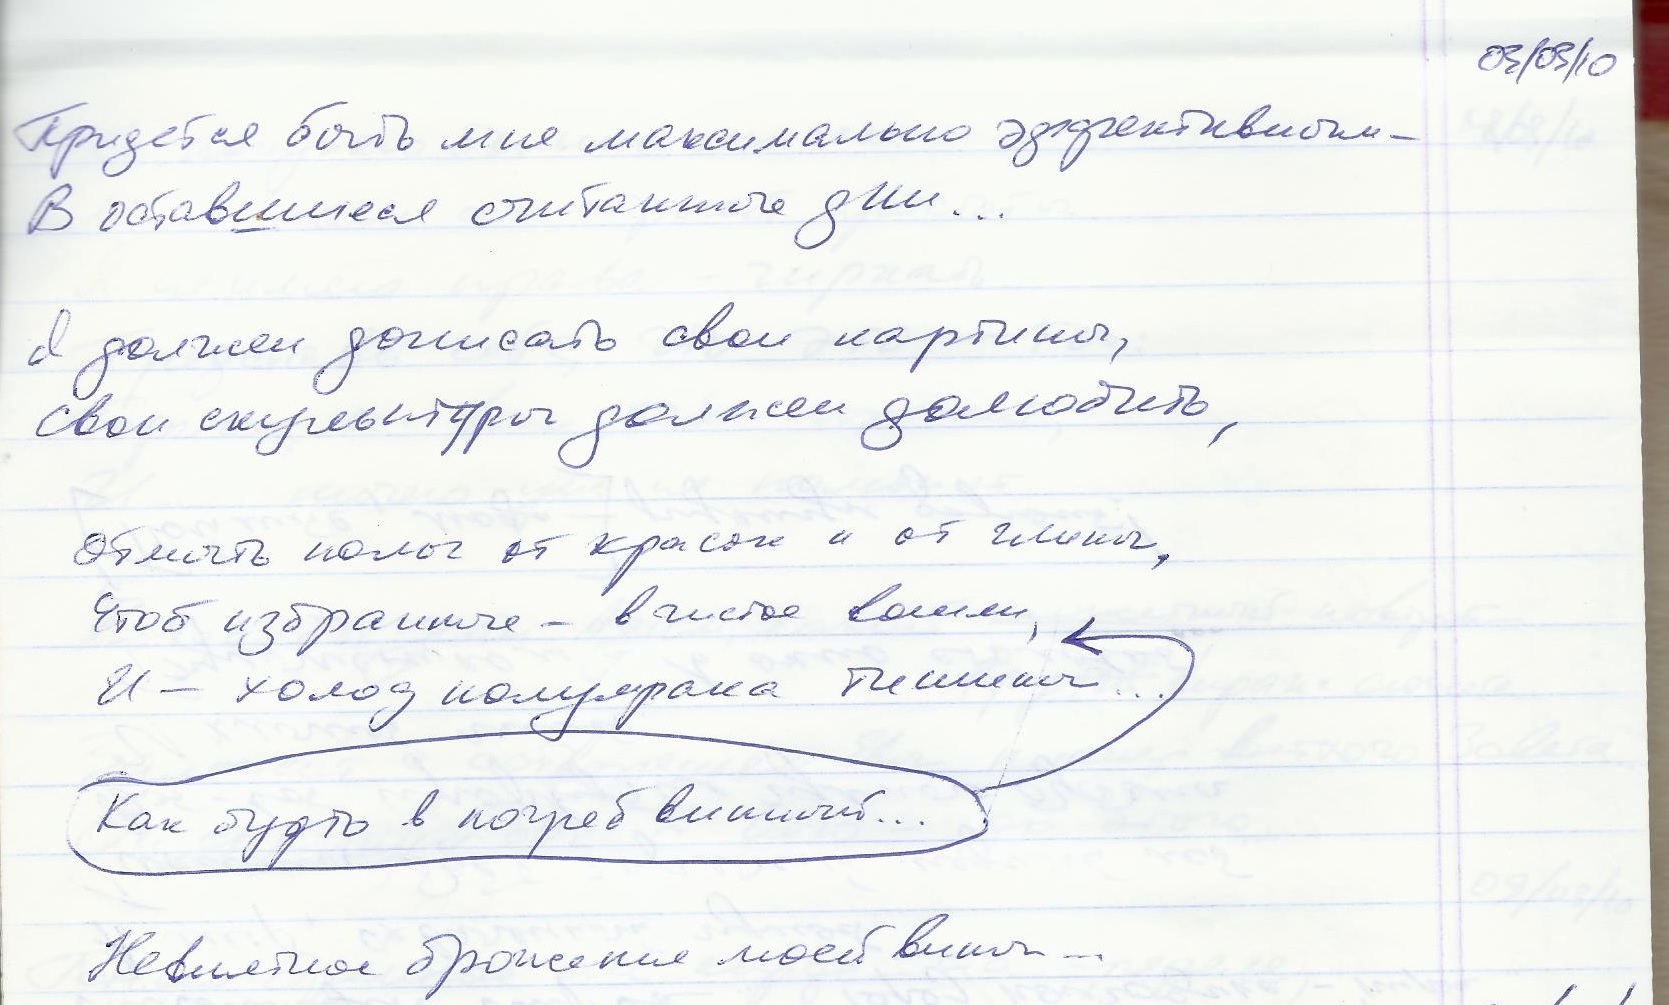 03/03/10
Придется быть мне максимально эффективным –
В оставшиеся считанные дни...
Я должен дописать свои картины,
Свои скульптуры должен долюбить,
Отмыть полы от красок и от глины,
Чтоб избранные – в чистое вошли,
И – холод полумрака тишины...
Как будто в погреб винный...
Невнятное брожение моей вины...